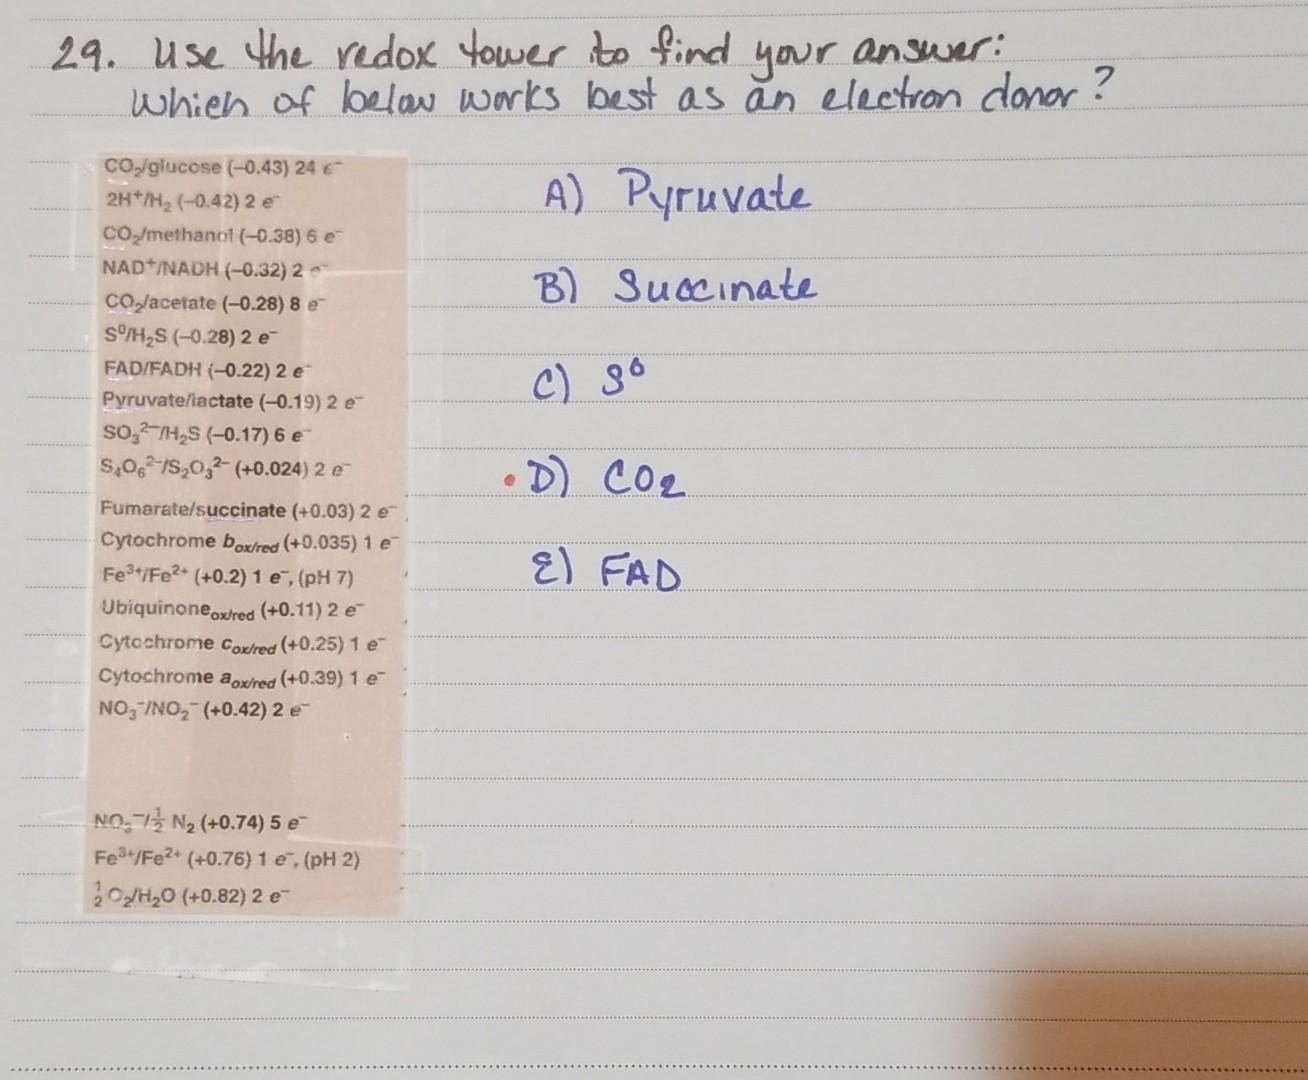 29. Use the redox tower to find your answer:
Which of below works best as an electron donor?
CO₂/glucose (−0.43) 24 e⁻
2H⁺/H₂ (−0.42) 2 e⁻
CO₂/methanol (−0.38) 6 e⁻
NAD⁺/NADH (−0.32) 2 e⁻
CO₂/acetate (−0.28) 8 e⁻
S⁰/H₂S (−0.28) 2 e⁻
FAD/FADH (−0.22) 2 e⁻
Pyruvate/lactate (−0.19) 2 e⁻
SO₃²⁻/H₂S (−0.17) 6 e⁻
S₄O₆²⁻/S₂O₃²⁻ (+0.024) 2 e⁻
Fumarate/succinate (+0.03) 2 e⁻
Cytochrome b ox/red (+0.035) 1 e⁻
Fe³⁺/Fe²⁺ (+0.2) 1 e⁻, (pH 7)
Ubiquinone ox/red (+0.11) 2 e⁻
Cytochrome c ox/red (+0.25) 1 e⁻
Cytochrome a ox/red (+0.39) 1 e⁻
NO₃⁻/NO₂⁻ (+0.42) 2 e⁻
NO₃⁻/½ N₂ (+0.74) 5 e⁻
Fe³⁺/Fe²⁺ (+0.76) 1 e⁻, (pH 2)
½ O₂/H₂O (+0.82) 2 e⁻
A) Pyruvate
B) Succinate
C) S⁰
D) CO₂
E) FAD